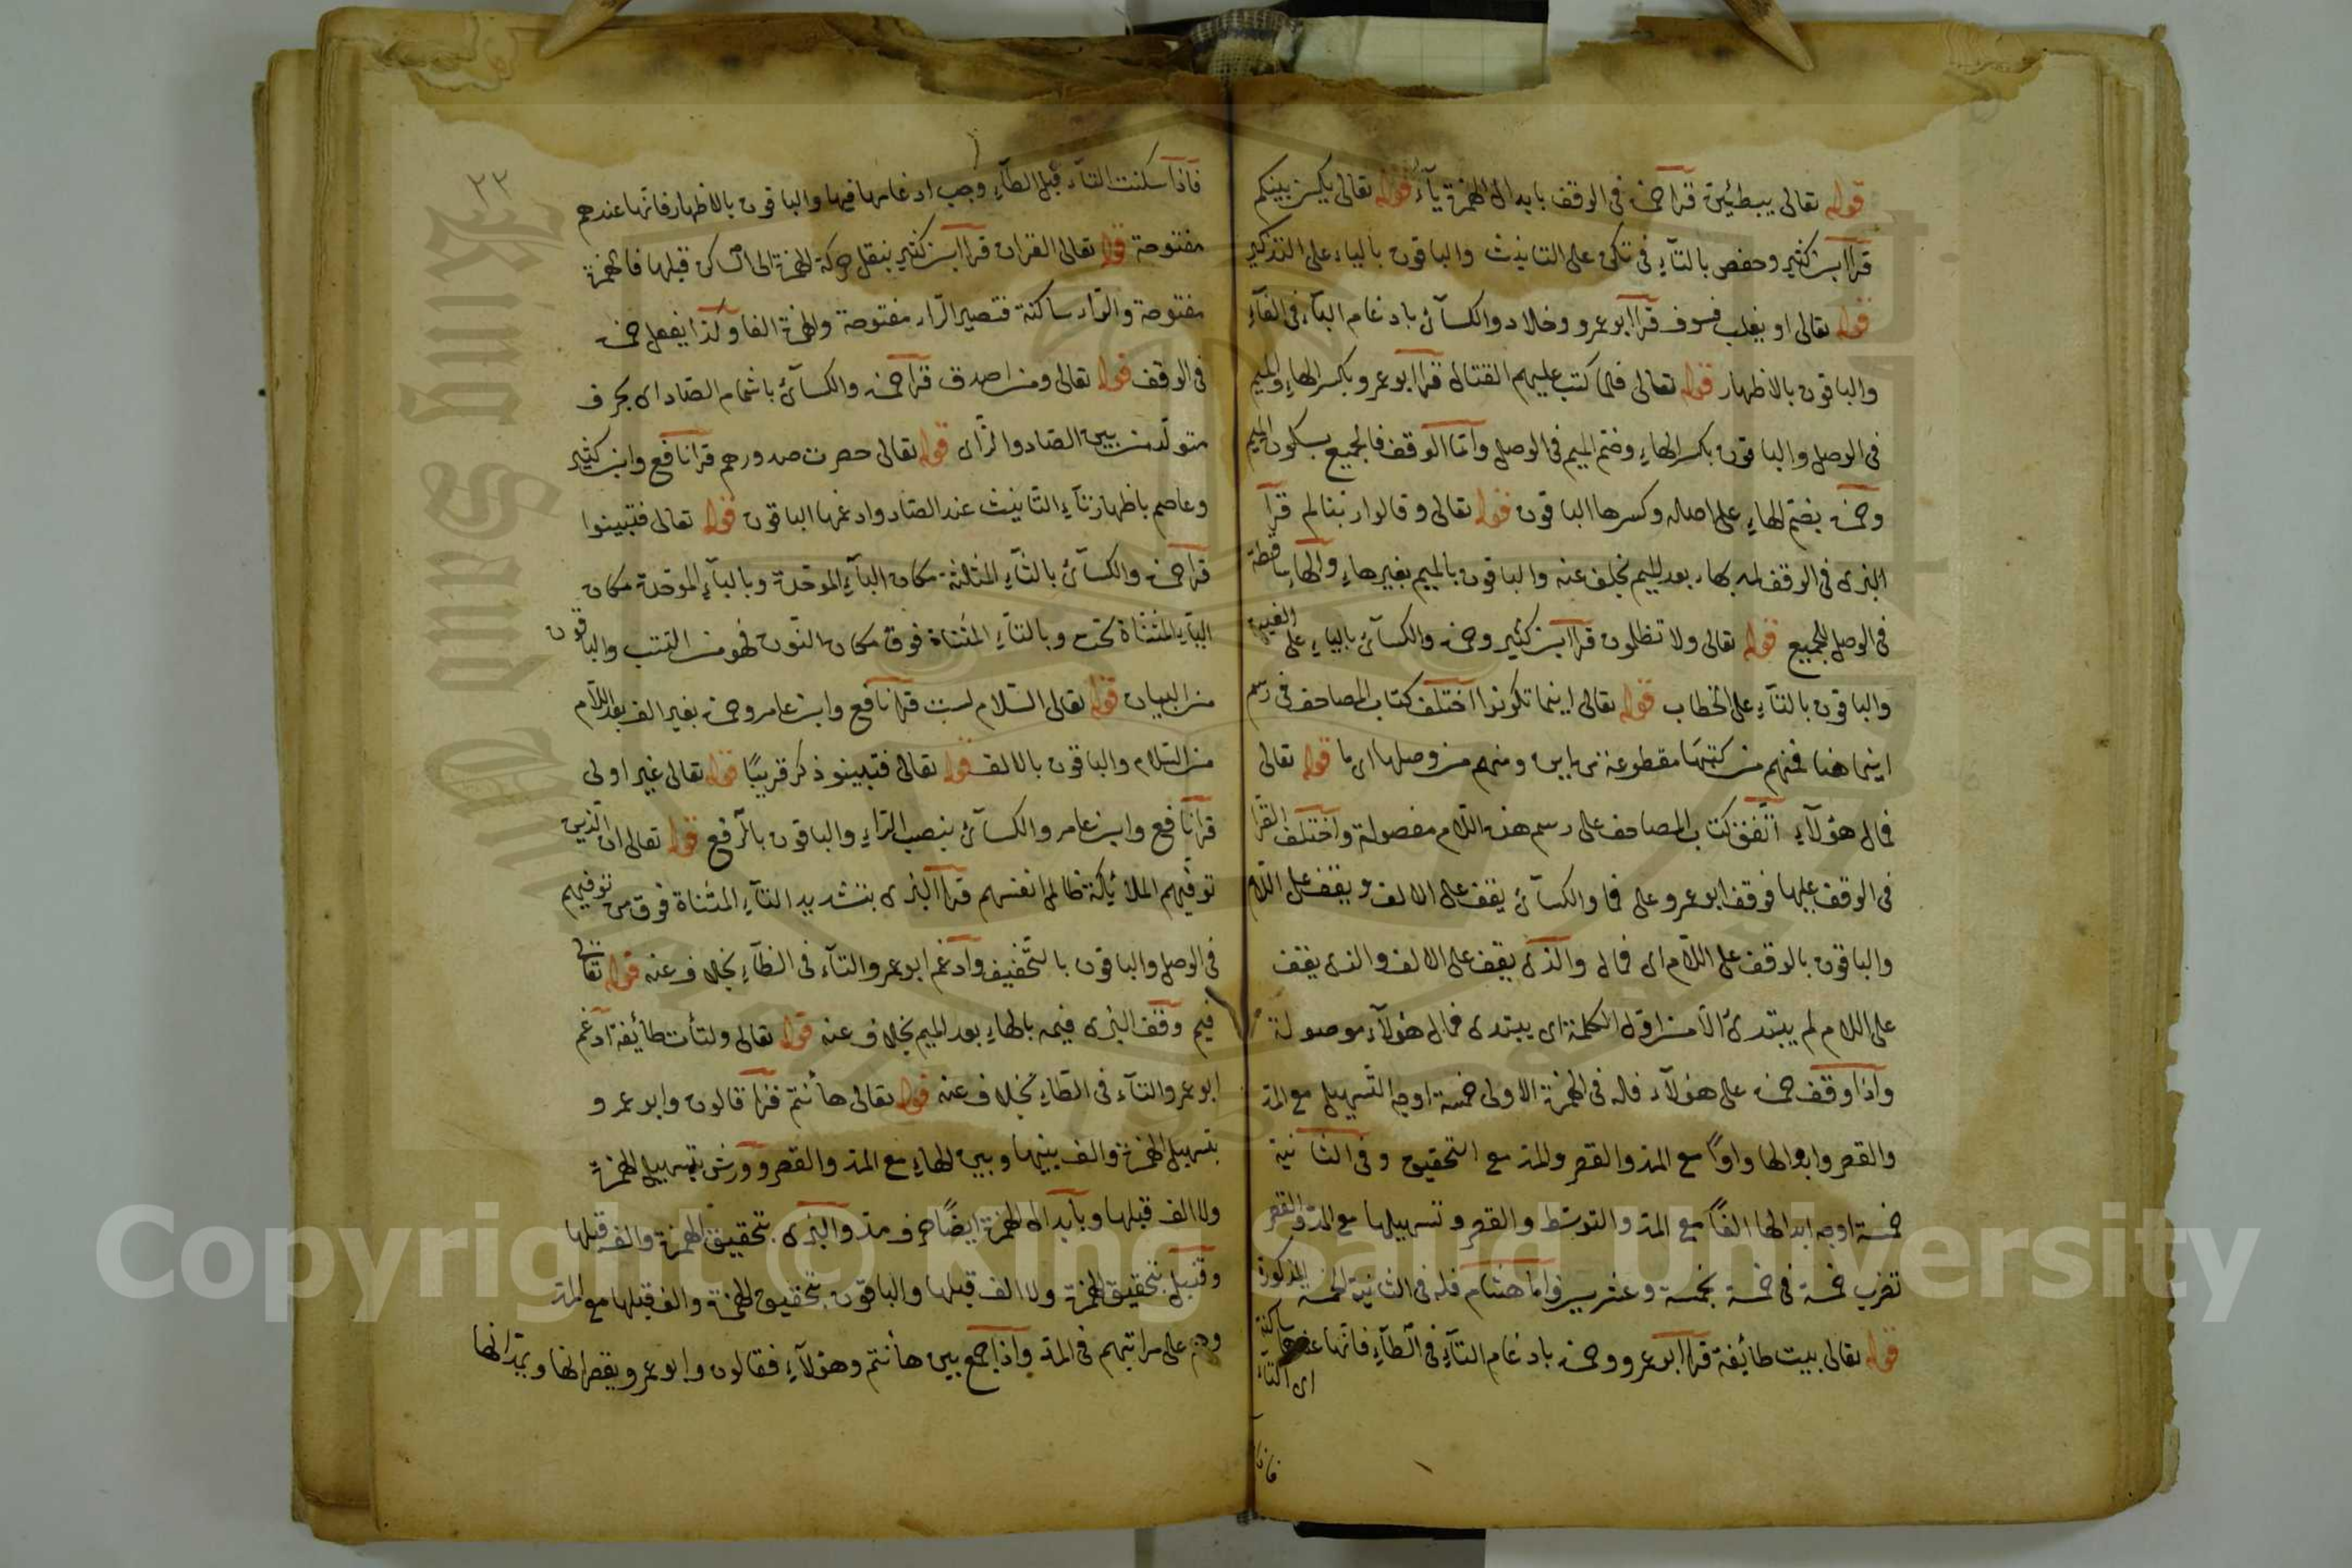 قوله تعالى يبطئين قرا حمزة في الوقف بابدال الهمزة ياء قوله تعالى يكن بينكم
قرا ابن كثير وحفص بالتاء في تكن على التانيث والباقون بالياء على التذكير
قوله تعالى او يغلب فسوف قرا ابو عمرو وخلاد والكسائي بادغام الباء في الفاء
والباقون بالاظهار قوله تعالى فلما كتب عليهم القتال قرا ابو عمرو بكسر الهاء والميم
في الوصل والباقون بكسر الهاء وضم الميم في الوصل واما الوقف فالجميع بسكون الميم
وحمزة بضم الهاء على اصله وكسرها الباقون قوله تعالى وقالوا ربنا لم قرا
البزي في الوقف لمه بهاء بعد الميم بخلف عنه والباقون بالميم بغير هاء والهاء ساقطة
في الوصل للجميع قوله تعالى ولا تظلمون قرا ابن كثير وحمزة والكسائي بالياء على الغيبة
والباقون بالتاء على الخطاب قوله تعالى اينما تكونوا اختلف كتاب المصاحف في رسم
اينما هنا فمنهم من كتبها مقطوعة من اين ومنهم من وصلها اي ما قوله تعالى
فمال هؤلاء اتفق كتاب المصاحف على رسم هذه اللام مفصولة واختلف القرا
في الوقف عليها فوقف ابو عمرو على فما والكسائي يقف على الالف ويقف على اللام
والباقون بالوقف على اللام اي فمال والذي يقف على الالف والذي يقف
على اللام لم يبتدئ الا من اول الكلمة اي يبتدئ فمال هؤلاء موصولة
واذا وقف حمزة على هؤلاء فله في الهمزة الاولى خمسة اوجه التسهيل مع المد
والقصر وابدالها واوا مع المد والقصر والمد مع التحقيق وفي الثانية
خمسة اوجه ابدالها الفا مع المد والتوسط والقصر وتسهيلها مع المد والقصر
تضرب خمسة في خمسة بخمسة وعشرين واما هشام فله في الثانية الخمسة المذكورة
قوله تعالى بيت طائفة قرا ابو عمرو وحمزة بادغام التاء في الطاء فانها عندهما ساكنة
اي التاء
فاذا
٢٢
فاذا سكنت التاء قبل الطاء وجب ادغامها فيها والباقون بالاظهار فانها عندهم
مفتوحة قوله تعالى القران قرا ابن كثير بنقل حركة الهمزة الى الساكن قبلها فالهمزة
مفتوحة والراء ساكنة فتصير الراء مفتوحة والهمزة الفا وكذا يفعل حمزة
في الوقف قوله تعالى ومن اصدق قرا حمزة والكسائي باشمام الصاد اي بحرف
متولد من بين الصاد والزاي قوله تعالى حصرت صدورهم قرا نافع وابن كثير
وعاصم باظهار تاء التانيث عند الصاد وادغمها الباقون قوله تعالى فتبينوا
قرا حمزة والكسائي بالثاء المثلثة مكان الباء الموحدة وبالباء الموحدة مكان
الياء المثناة تحت وبالتاء المثناة فوق مكان النون فهو من التثبت والباقون
من البيان قوله تعالى السلام لست قرا نافع وابن عامر وحمزة بغير الف بعد اللام
من السلم والباقون بالالف قوله تعالى فتبينوا ذكر قريبًا قوله تعالى غير اولى
قرا نافع وابن عامر والكسائي بنصب الراء والباقون بالرفع قوله تعالى ان الذين
توفيهم الملائكة ظالمي انفسهم قرا البزي بتشديد التاء المثناة فوق من توفيهم
في الوصل والباقون بالتخفيف وادغم ابو عمرو التاء في الظاء بخلاف عنه قوله تعالى
فيم وقف البزي فيمه بالهاء بعد الميم بخلاف عنه قوله تعالى ولتأت طائفة ادغم
ابو عمرو التاء في الطاء بخلاف عنه قوله تعالى هاأنتم قرا قالون وابو عمرو
بتسهيل الهمزة والف بينها وبين الهاء مع المد والقصر وورش بتسهيل الهمزة
ولا الف قبلها وبابدال الهمزة ايضًا حرف مد والبزي بتحقيق الهمزة والف قبلها
وقنبل بتحقيق الهمزة ولا الف قبلها والباقون بتحقيق الهمزة والف قبلها مع المد
وهم على مراتبهم في المد واذا جمع بين هاأنتم وهؤلاء فقالون وابو عمرو يقصر انها ويمد انها
Copyright © King Saud University
King Saud University